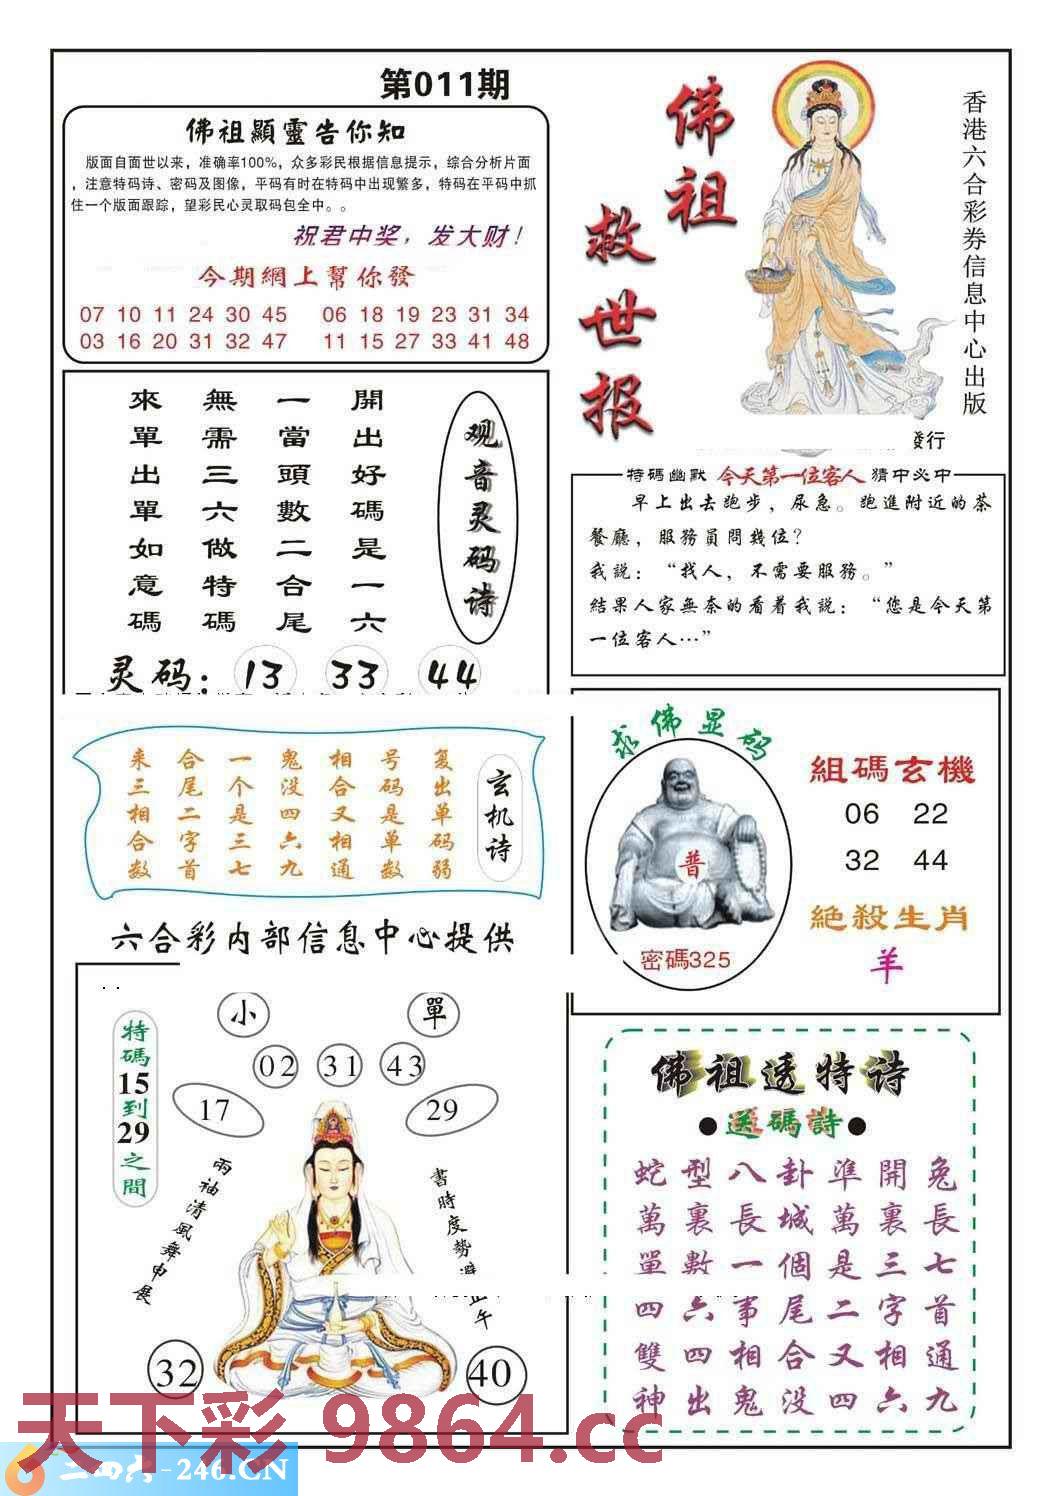 第011期
佛祖顯靈告你知
版面自面世以来，准确率100%，众多彩民根据信息提示，综合分析片面
，注意特码诗、密码及图像，平码有时在特码中出现繁多，特码在平码中抓
住一个版面跟踪，望彩民心灵取码包全中。。
祝君中奖，发大财！
今期網上幫你發
07 10 11 24 30 45 06 18 19 23 31 34
03 16 20 31 32 47 11 15 27 33 41 48
佛祖
救世报
香港六合彩券信息中心出版
發行
观音灵码诗
開出好碼是一六
一當頭數二合尾
無需三六做特碼
來單出單如意碼
灵码：13 33 44
特碼幽默 今天第一位客人 猜中必中
早上出去跑步，尿急。跑進附近的茶
餐廳，服務員問幾位？
我説：“找人，不需要服務。”
結果人家無奈的看着我説：“您是今天第
一位客人…”
玄机诗
复出单码弱
号码是单数
相合又相通
鬼没四六九
一个是三七
合尾二字首
来三相合数
六合彩内部信息中心提供
求佛显码
普
密碼325
組碼玄機
06 22
32 44
絕殺生肖
羊
小
單
02 31 43
17
29
特碼15到29之間
兩袖清風舞申展
32
40
佛祖透特诗
●送碼詩●
蛇型八卦準開兔
萬裏長城萬裏長
單數一個是三七
四六事尾二字首
雙四相合又相通
神出鬼没四六九
天下彩 9864.cc
二四六-246.CN